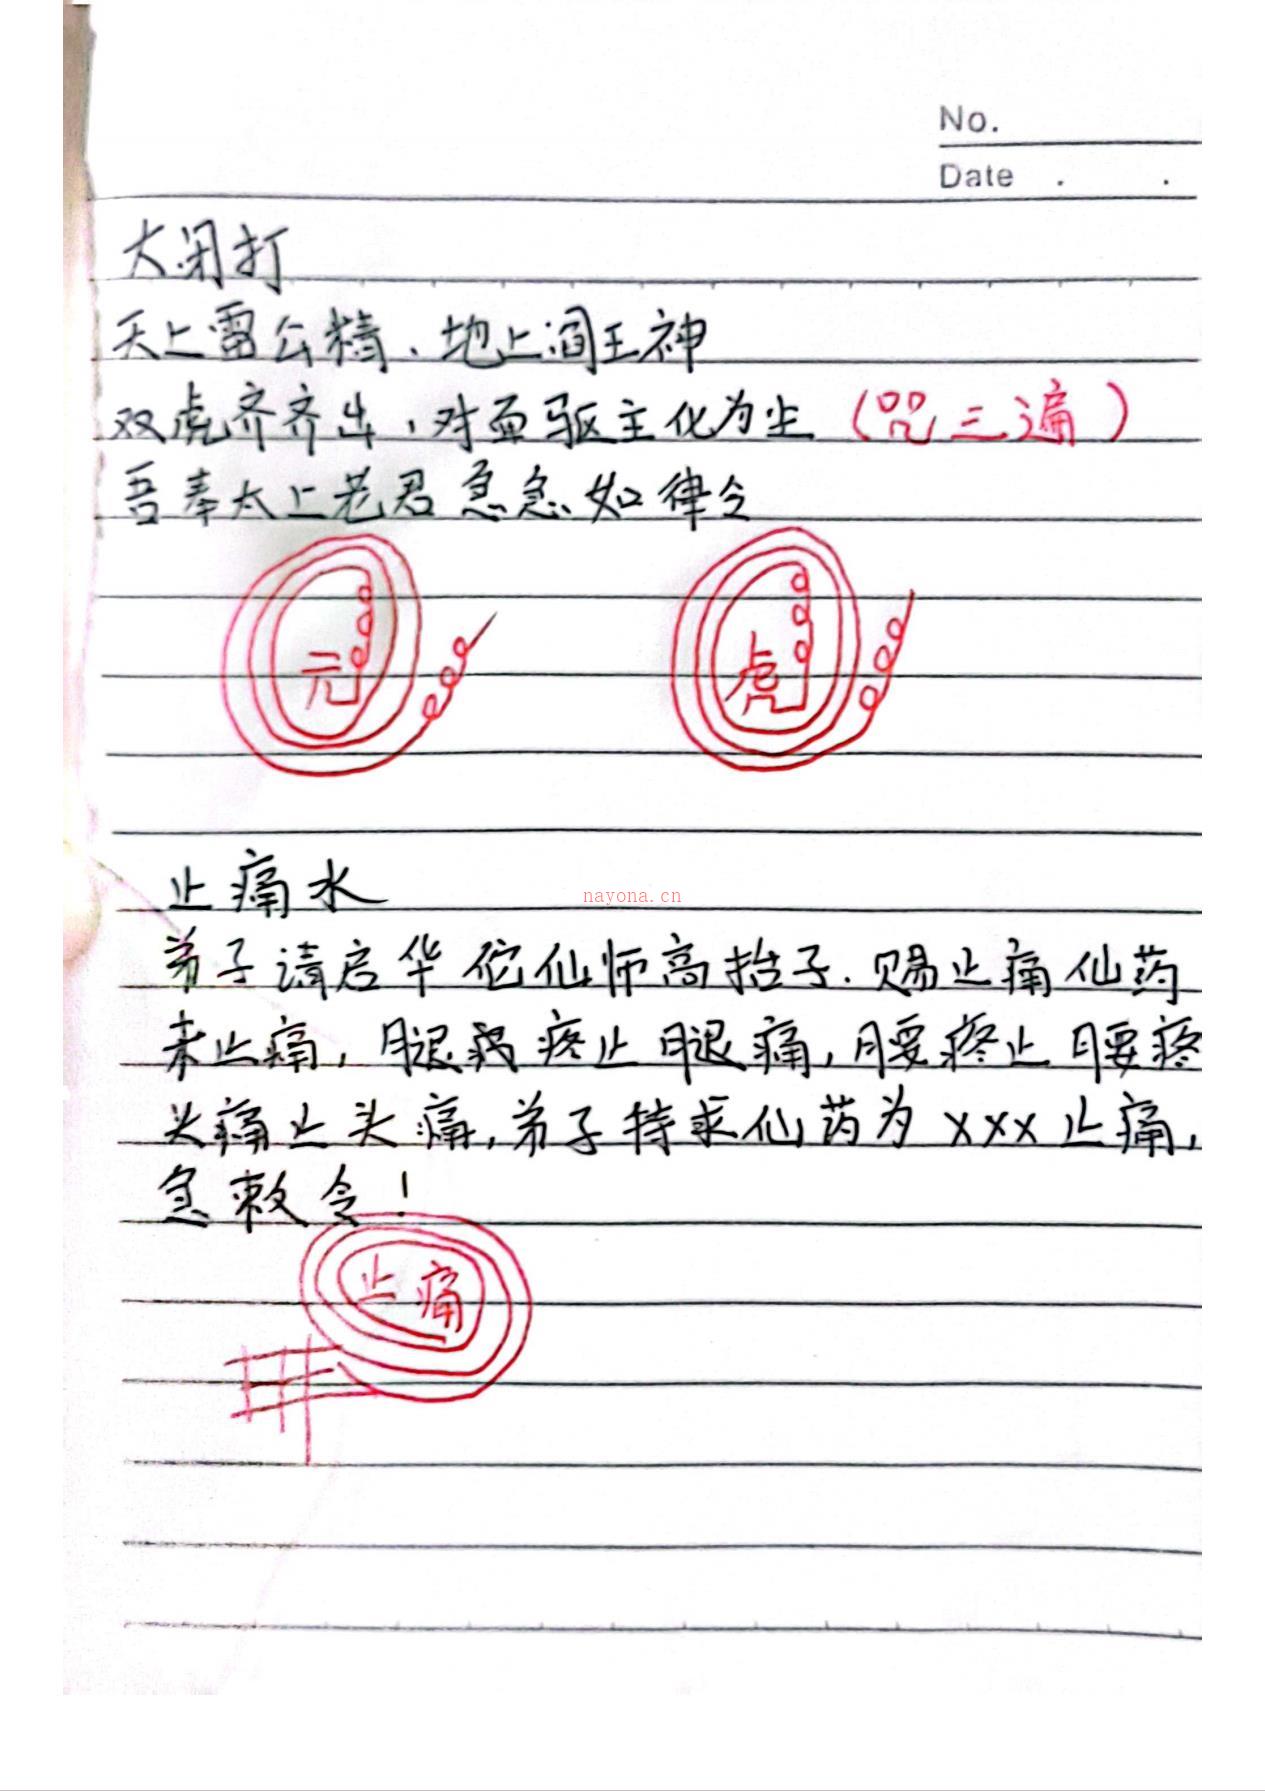 No.
Date . .
大闭打
天上雷公精，地上阎王神
双虎齐齐出，对面驱主化为尘（咒三遍）
吾奉太上老君急急如律令
元 虎
止痛水
nayona.cn
弟子请启华佗仙师高抬子．赐止痛仙药
来止痛，腿疼止腿痛，腰疼止腰疼
头痛止头痛，弟子特求仙药为XXX止痛，
急敕令！
止痛